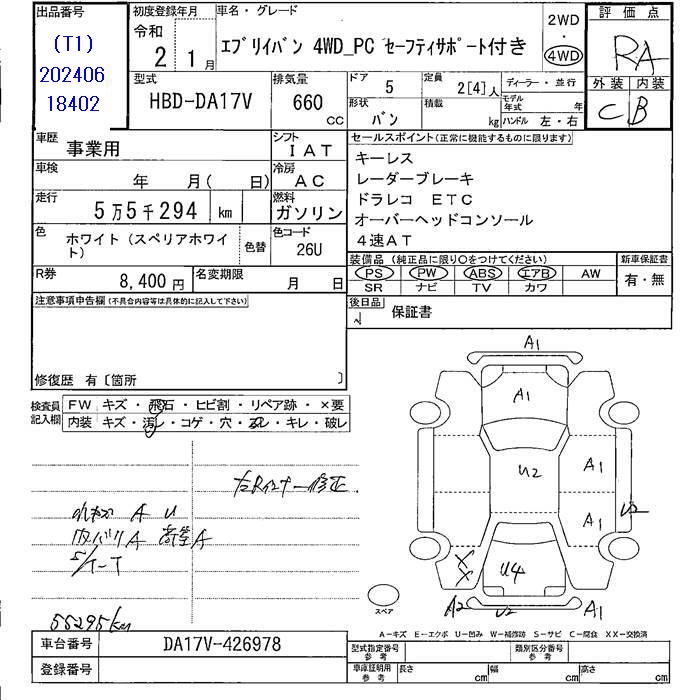 出品番号
(T1)
202406
18402
初度登録年月
令和
2 1月
車名・グレード
エブリイバン 4WD_PC セーフティサポート付き
2WD
・
4WD
評価点
RA
外装 内装
C B
型式
HBD-DA17V
排気量
660
CC
ドア 5
定員 2[4]人
ディーラー・並行
形状 バン
積載 kg
モデル年式 年
ハンドル 左・右
車歴 事業用
シフト IAT
車検 年 月( 日)
冷房 AC
走行 5万5千294 km
燃料 ガソリン
色 ホワイト(スペリアホワイト)
色替
色コード 26U
R券 8,400円
名変期限 月 日
セールスポイント(正常に機能するものに限ります)
キーレス
レーダーブレーキ
ドラレコ ETC
オーバーヘッドコンソール
4速AT
装備品(純正品に限り○をつけてください)
新車保証書
PS PW ABS エアB AW
有・無
SR ナビ TV カワ
後日品
保証書
注意事項申告欄(不具合内容等は具体的に記入して下さい)
修復歴 有〔箇所 〕
検査員記入欄
FW キズ・飛石・ヒビ割・リペア跡・×要
内装 キズ・汚レ・コゲ・穴・スレ・キレ・破レ
左Rインナー修正
A U
内バリA 荷室A
55295km
A1
A1
U2
A1
A1
U2
XX
U4
A2 U2 A1
スペア
A-キズ E-エクボ U-凹み W-補修跡 S-サビ C-腐食 XX-交換済
車台番号 DA17V-426978
登録番号
型式指定番号 参考
類別区分番号 参考
車庫証明用 参考
長さ cm 幅 cm 高さ cm